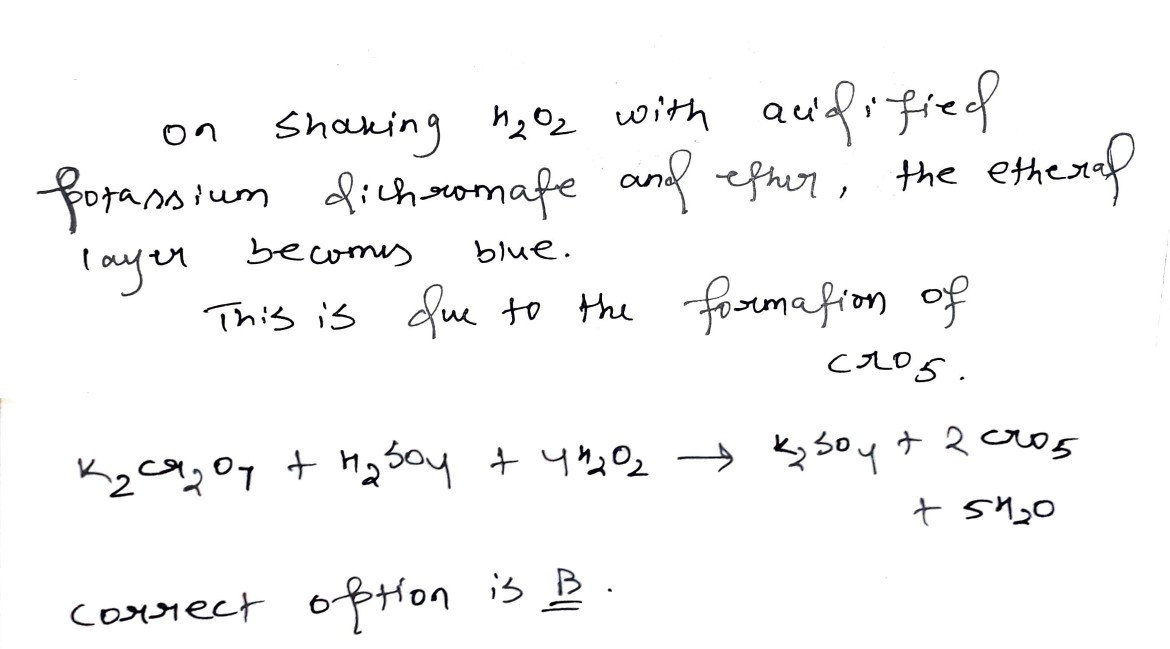 on shaking H₂O₂ with acidified
potassium dichromate and ether, the etheral
layer becomes blue.
This is due to the formation of
CrO₅.
K₂Cr₂O₇ + H₂SO₄ + 4H₂O₂ → K₂SO₄ + 2CrO₅
+ 5H₂O
correct option is B.